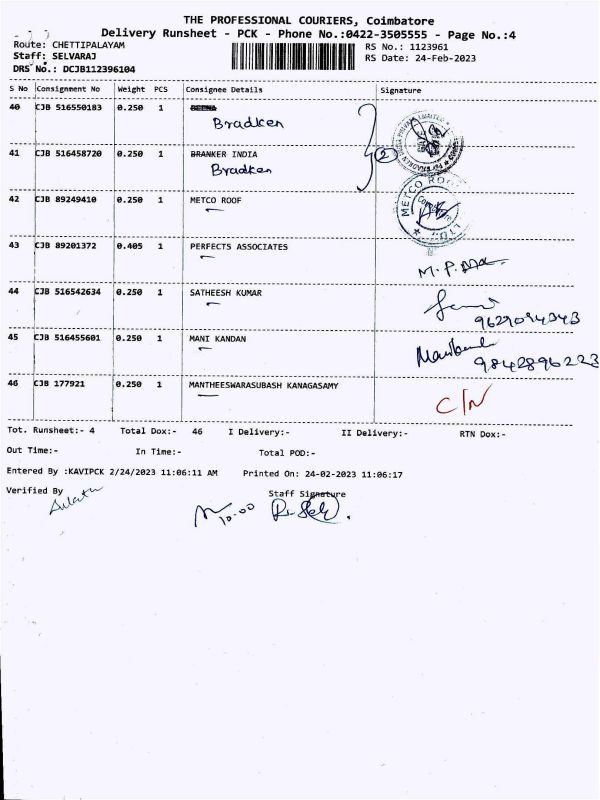 THE PROFESSIONAL COURIERS, Coimbatore
Delivery Runsheet - PCK - Phone No.:0422-3505555 - Page No.:4
Route: CHETTIPALAYAM RS No.: 1123961
Staff: SELVARAJ RS Date: 24-Feb-2023
DRS No.: DCJB112396104
S No Consignment No Weight PCS Consignee Details Signature
40 CJB 516550183 0.250 1
Bradken
41 CJB 516458720 0.250 1 BRANKER INDIA
Bradken
2
42 CJB 89249410 0.250 1 METCO ROOF
METCO ROOF
43 CJB 89201372 0.405 1 PERFECTS ASSOCIATES
M. P.
44 CJB 516542634 0.250 1 SATHEESH KUMAR
9629094343
45 CJB 516455601 0.250 1 MANI KANDAN
9842896223
46 CJB 177921 0.250 1 MANTHEESWARASUBASH KANAGASAMY
C/N
Tot. Runsheet:- 4 Total Dox:- 46 I Delivery:- II Delivery:- RTN Dox:-
Out Time:- In Time:- Total POD:-
Entered By :KAVIPCK 2/24/2023 11:06:11 AM Printed On: 24-02-2023 11:06:17
Verified By Staff Signature
10.00